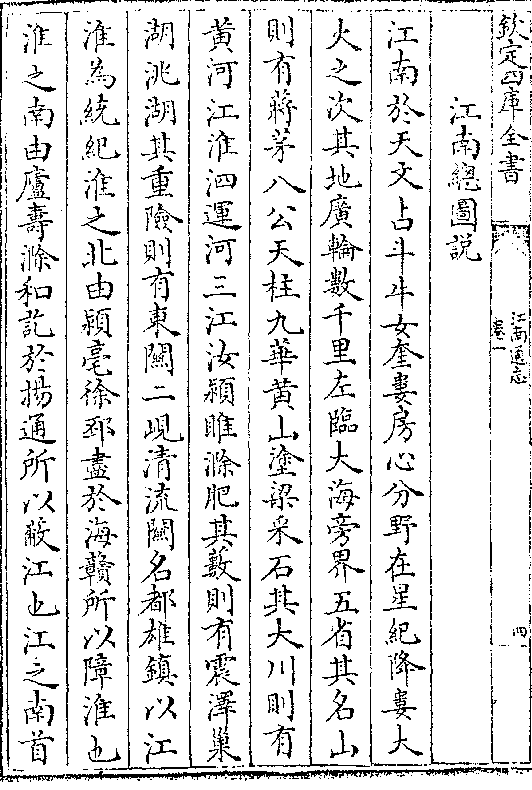 欽定四庫全書
江南通志
卷一
四
江南總圖説
江南於天文占斗牛女奎婁房心分野在星紀降婁大
火之次其地廣輪數千里左臨大海旁界五省其名山
則有蔣茅八公天柱九華黄山塗梁采石其大川則有
黄河江淮泗運河三江汝潁睢滁肥其藪則有震澤巢
湖洮湖其重險則有東關二峴清流關名都雄鎮以江
淮為統紀淮之北由潁亳徐邳盡於海贛所以障淮也
淮之南由廬壽滁和訖於揚通所以蔽江也江之南首